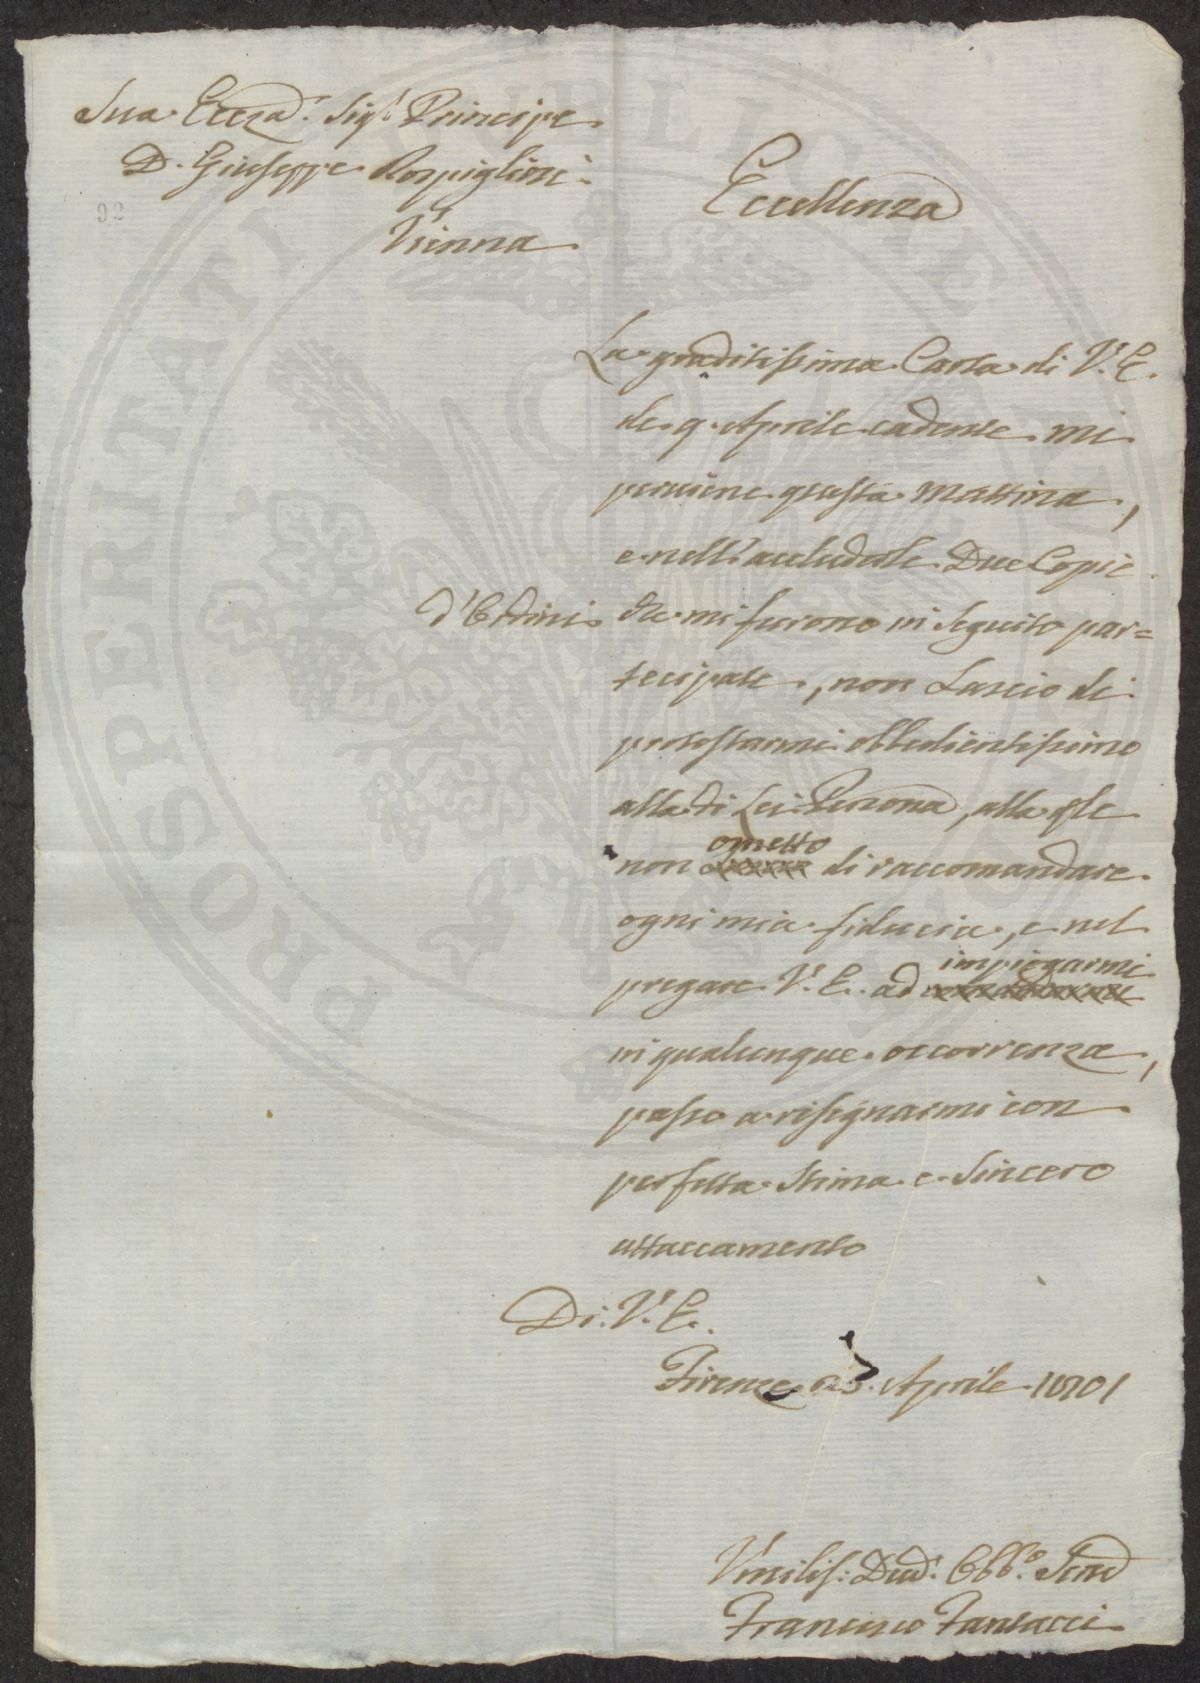 Sua Eccza. Sigr. Principe
D. Giuseppe Rospigliosi
Vienna
92
Eccellenza
La graditissima Carta di V. E.
de 9. Aprile cadente mi
perviene questa mattina,
e nell'accluderle Due Copie
d'Ordini che mi furono in seguito par=
tecipate, non Lascio di
protestarmi obbedientissimo
alla di Lei Persona, alla qle
ometto
non di raccomandare
ogni mia fiducia, e nel
impiegarmi
pregare V. E. ad
in qualunque occorrenza,
passo a risegnarmi con
perfetta Stima e Sincero
attaccamento
Di V. E.
Firenze Aprile 1801
Umilis: Dev. Obb.o Serv
Francesco
PROSPERITATI PUBLICAE